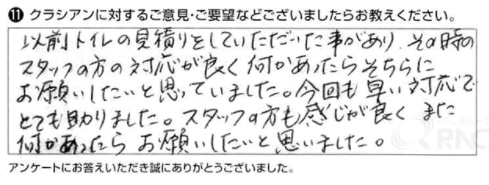 ⓫ クラシアンに対するご意見・ご要望などございましたらお教えください。
以前トイレの見積りをしていただいた事があり、その時の
スタッフの方の対応が良く何かあったらそちらに
お願いしたいと思っていました。今回も早い対応で
とても助りました。スタッフの方も感じが良く また
何かあったら お願いしたいと思いました。
RNC
アンケートにお答えいただき誠にありがとうございました。